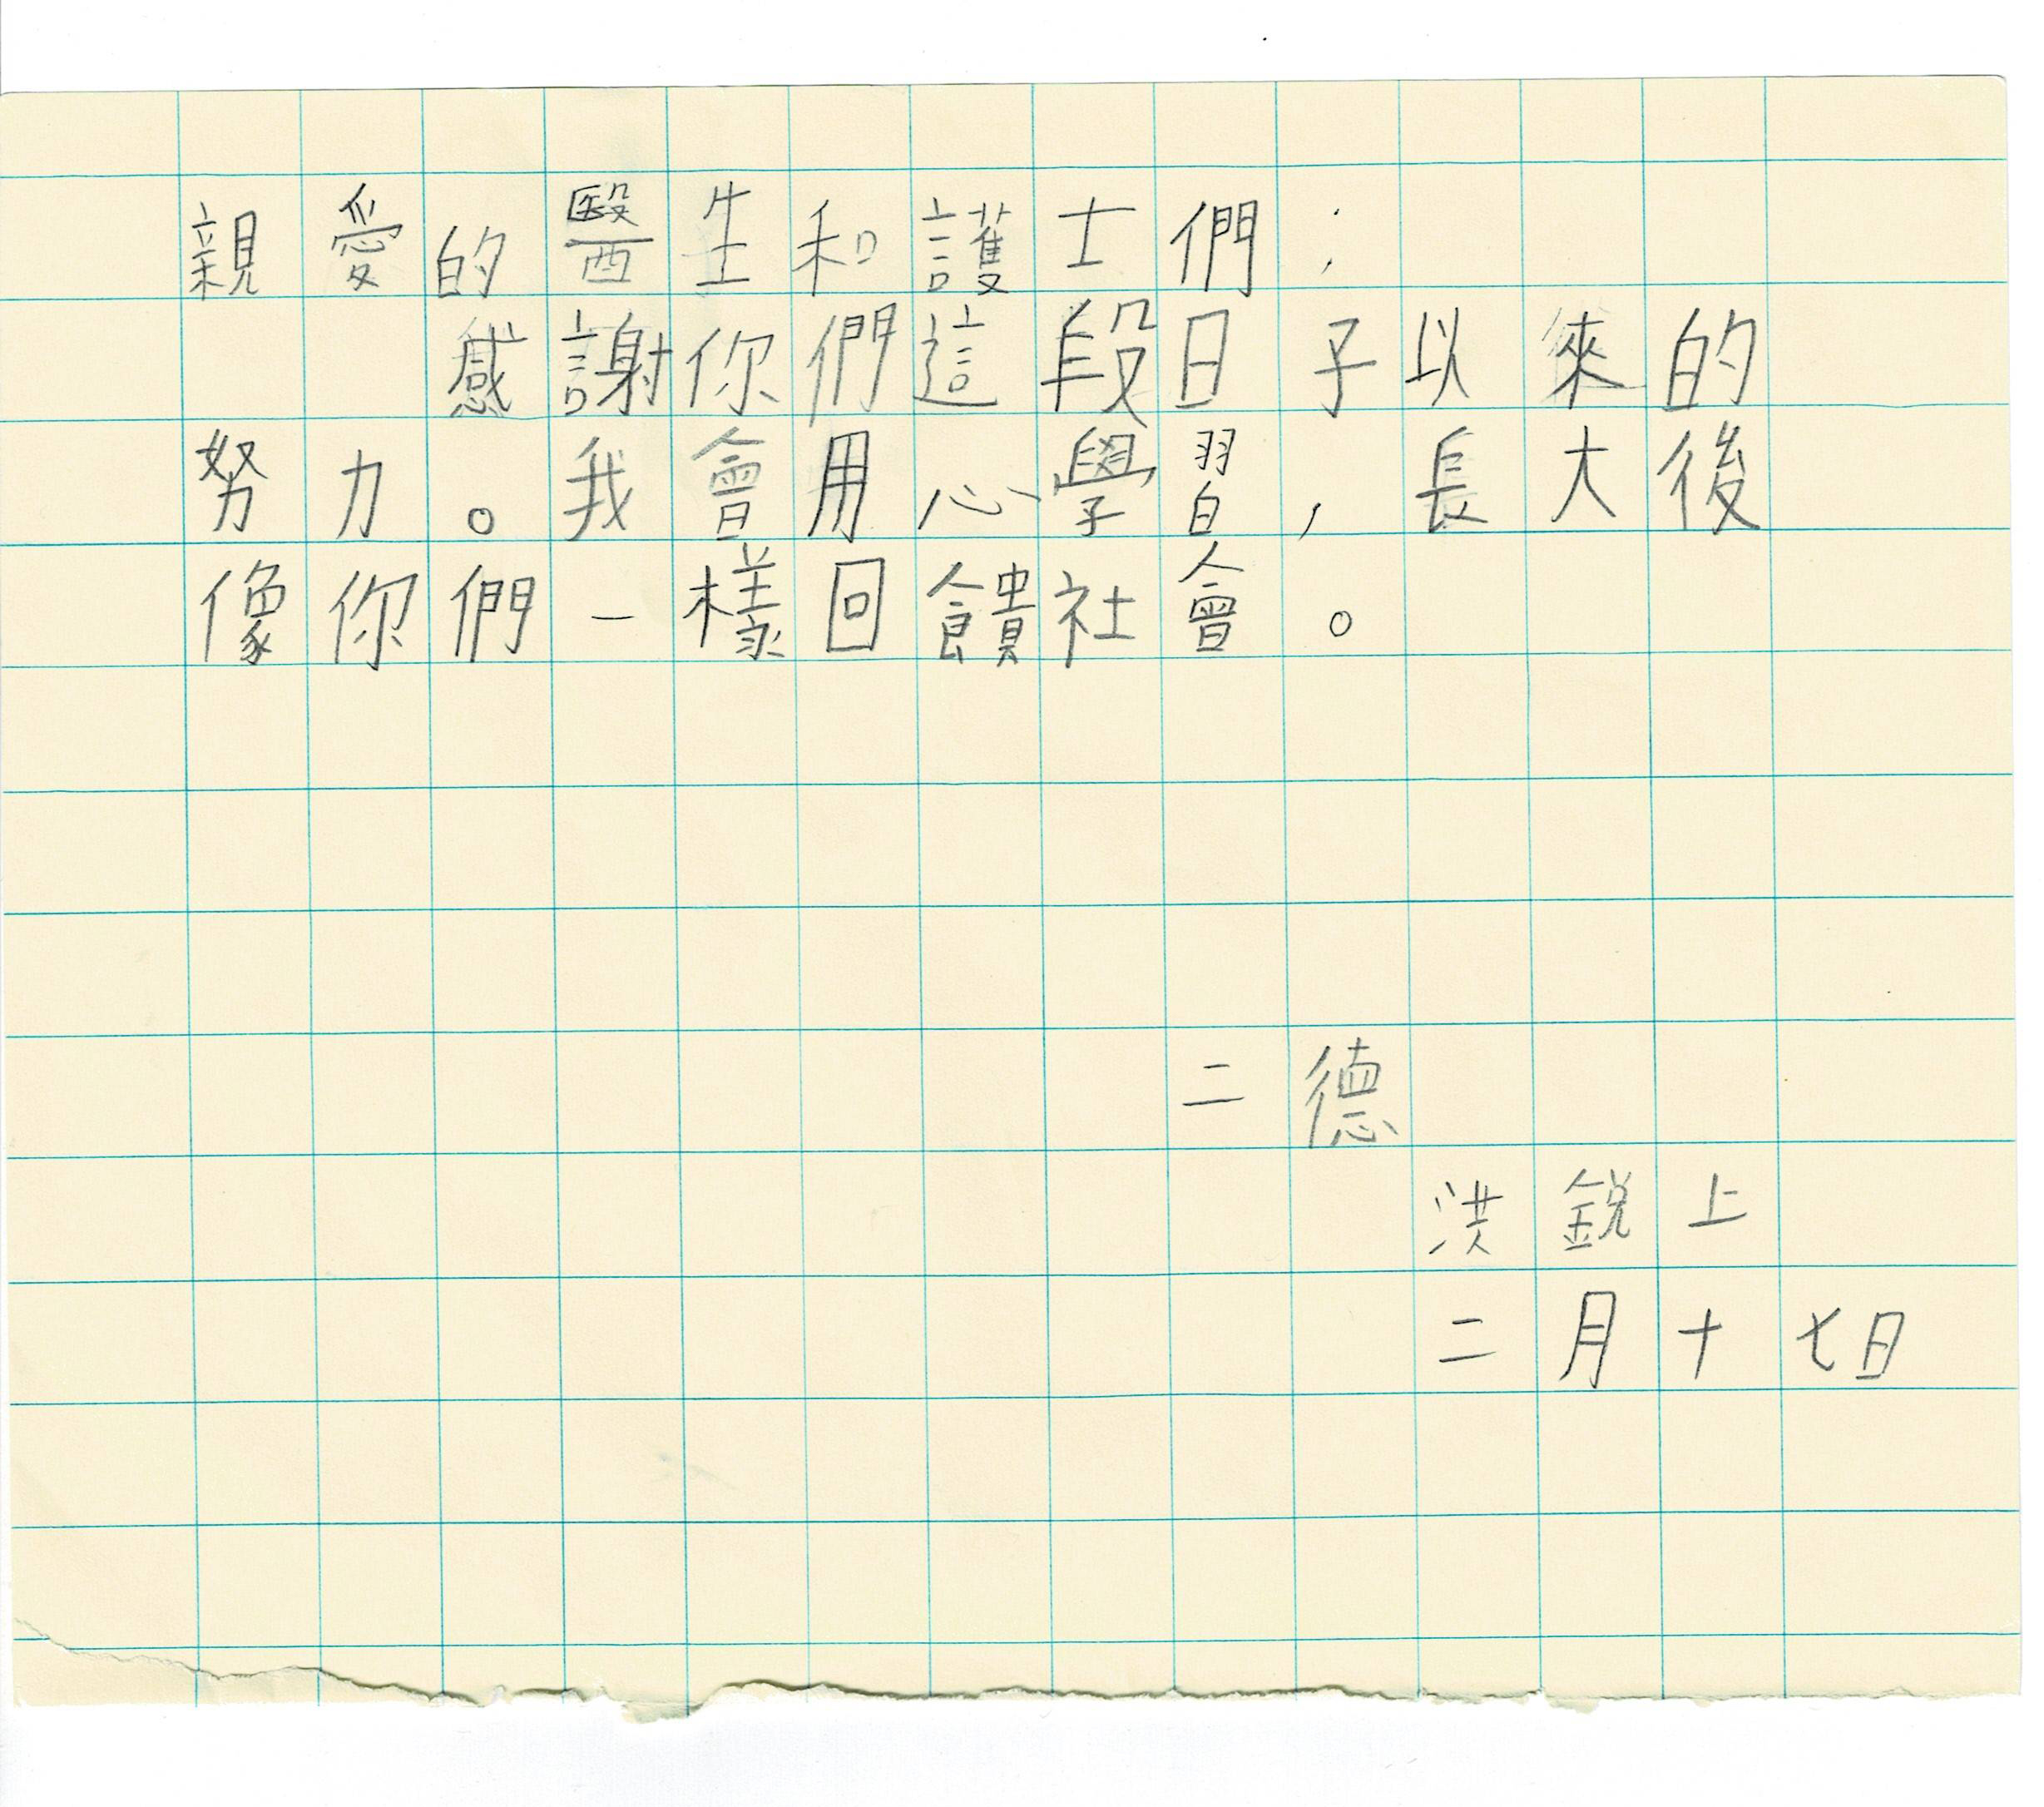 親愛的醫生和護士們：
感謝你們這段日子以來的
努力。我會用心學習，長大後
像你們一樣回饋社會。
二德
洪銳上
二月十七日